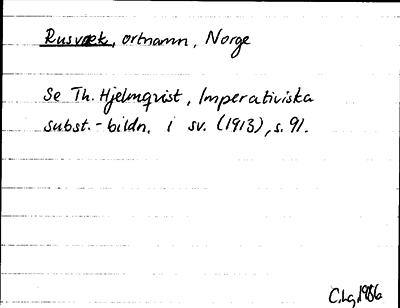 Rusvæk, ortnamn, Norge
Se Th. Hjelmqvist, Imperativiska
subst.-bildn. i sv. (1913), s. 91.
C.Lg. 1986